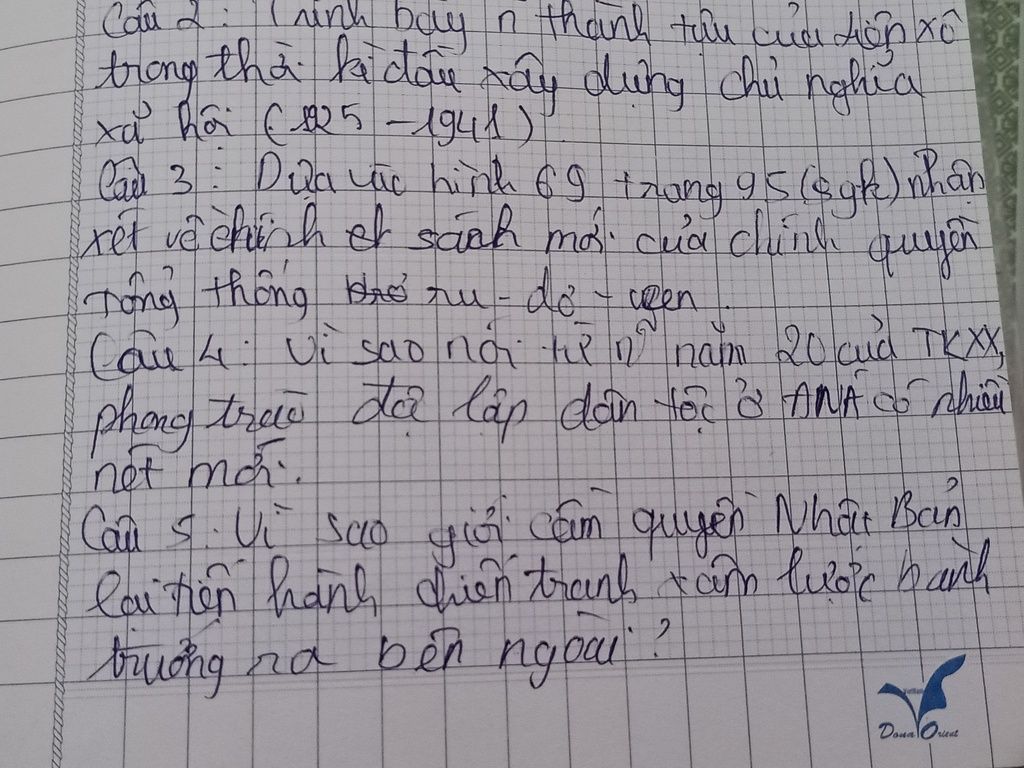 Câu 2: Trình bày n~ thành tựu của Liên xô
trong thời kì đầu xây dựng chủ nghĩa
xã hội (1925 - 1941)
Câu 3: Dựa vào hình 69 trang 95 (sgk) nhận
xét về chính sách mới của chính quyền
Tổng thống ru - dơ - ven.
Câu 4: Vì sao nói từ n~ năm 20 của TKXX,
phong trào độc lập dân tộc ở ĐNÁ có nhiều
nét mới.
Câu 5: Vì sao giới cầm quyền Nhật Bản
lại tiến hành chiến tranh xâm lược bành
trướng ra bên ngoài?
Dona Orient